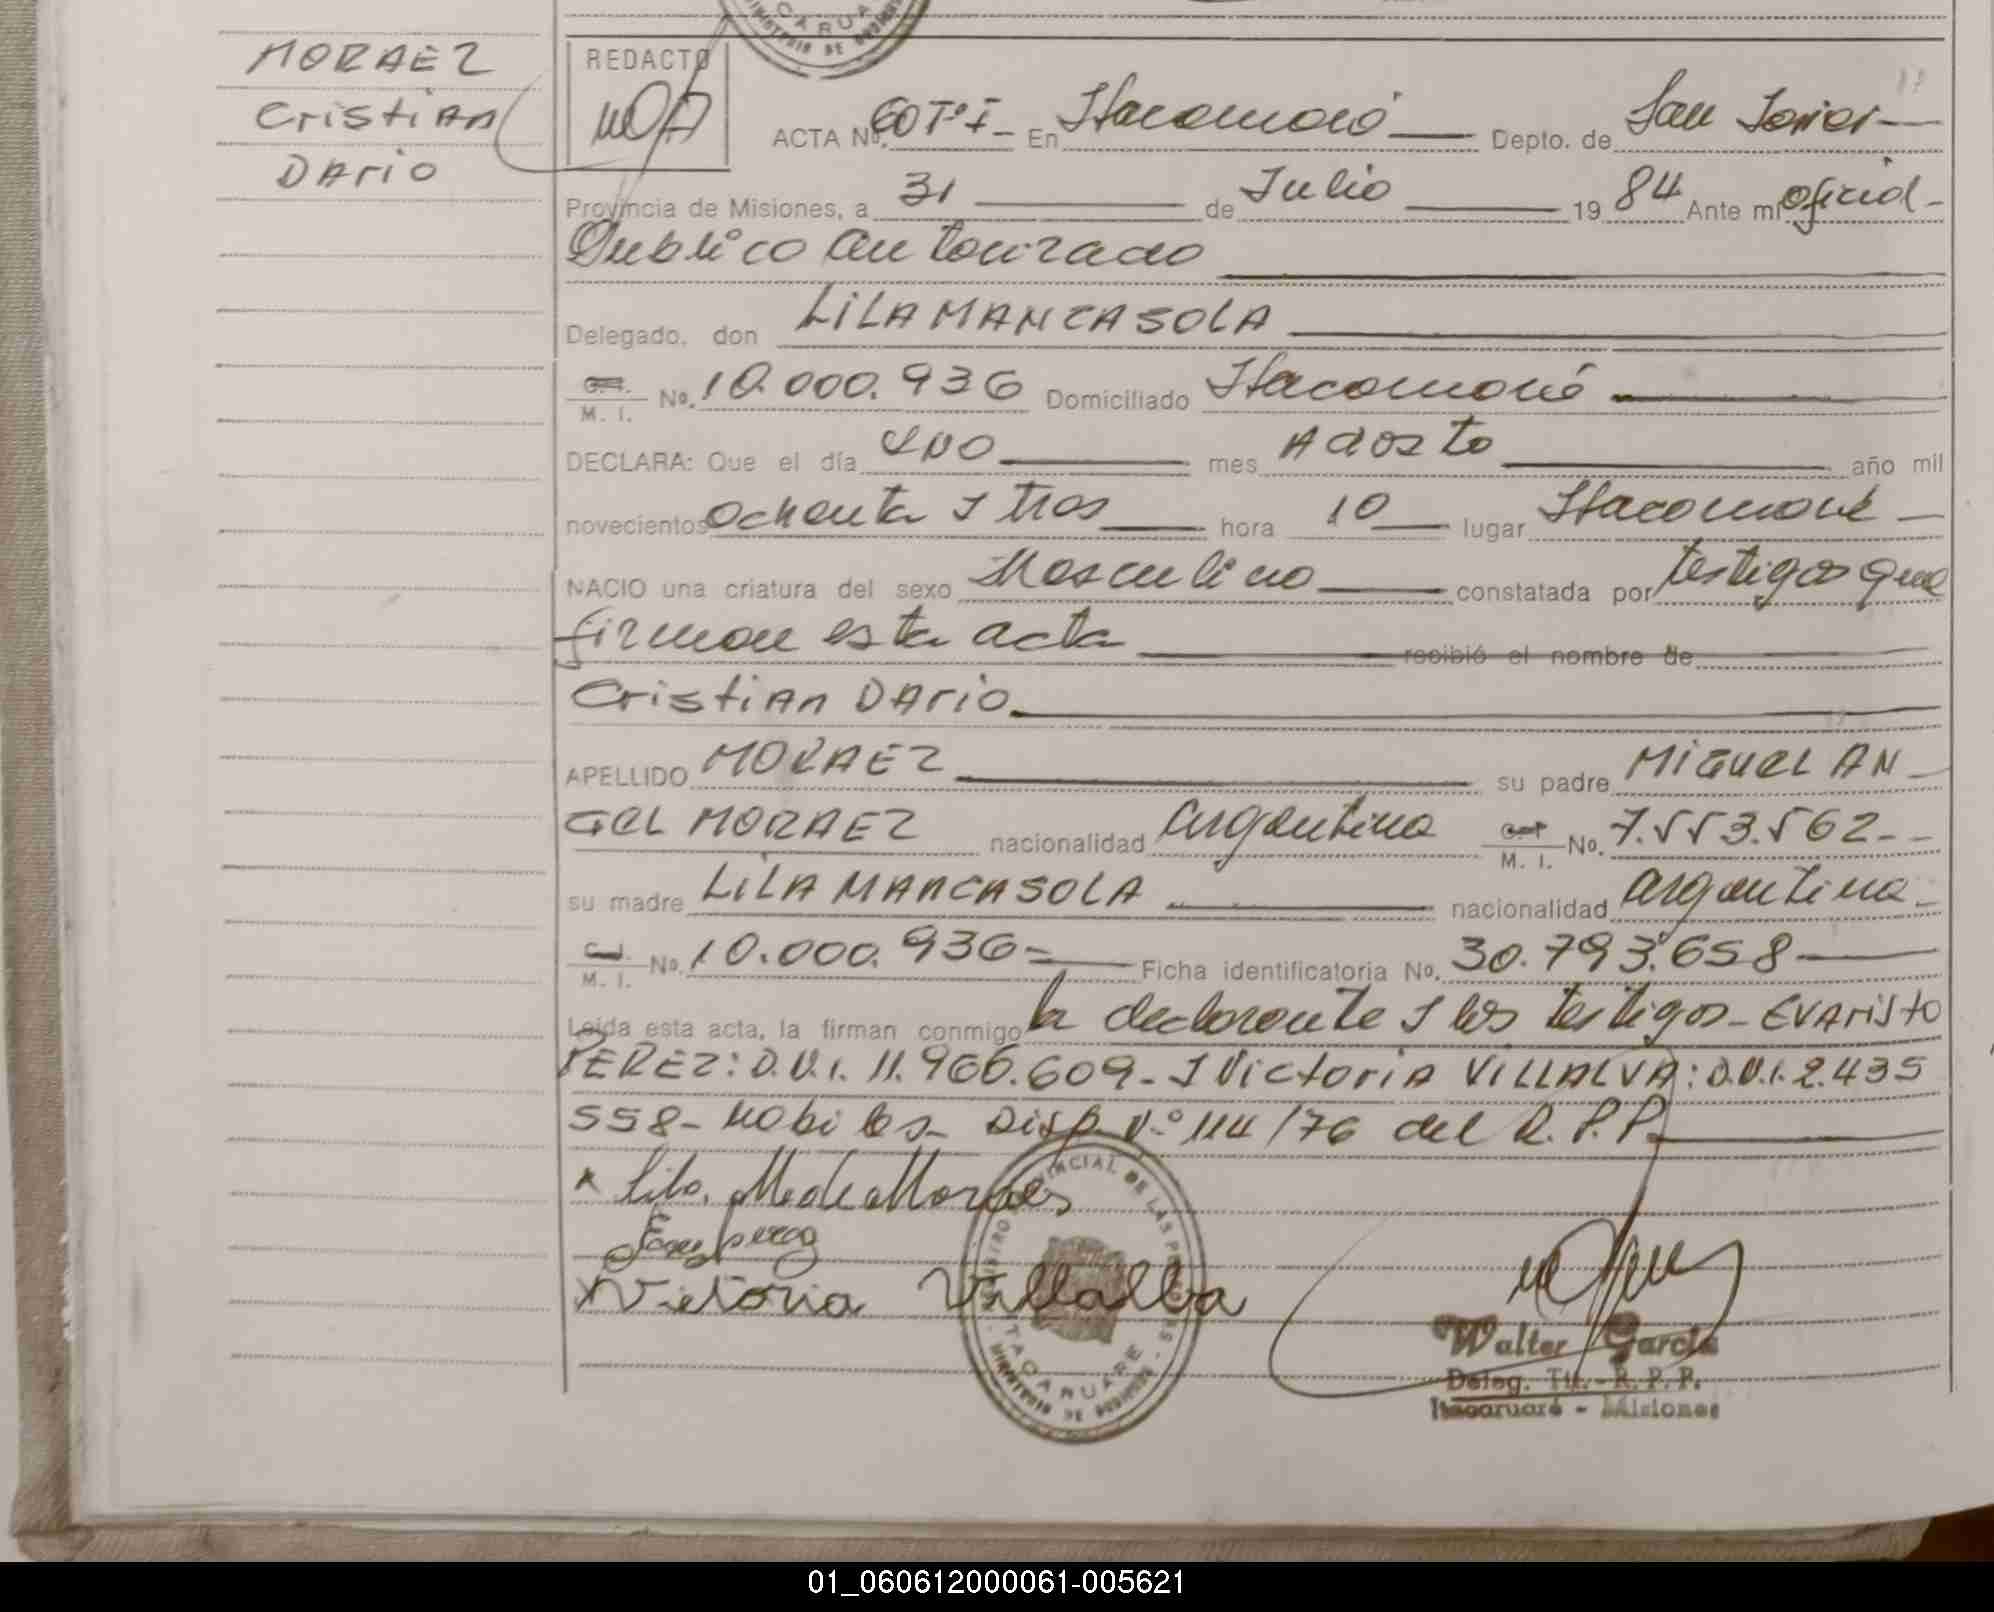 MORAEZ
Cristian
DARIO
REDACTO
ACTA No. 60 Tº I - En Itacaruaré Depto. de San Javier
Provincia de Misiones, a 31 de Julio 19 84 Ante mi oficial
Publico autorizado
Delegado, don LILA MANCASOLA
M. I. No. 10.000.936 Domiciliado Itacaruaré
DECLARA: Que el día uno mes Agosto año mil
novecientos ochenta y tres hora 10 lugar Itacaruaré
NACIO una criatura del sexo Masculino constatada por testigos que
firman esta acta recibió el nombre de
Cristian DARIO
APELLIDO MORAEZ su padre MIGUEL AN
GEL MORAEZ nacionalidad argentina M. I. No. 7.553.562--
su madre LILA MANCASOLA nacionalidad argentina
M. I. No. 10.000.936= Ficha identificatoria No. 30.793.658
Leida esta acta, la firman conmigo la declarante y los testigos - EVARISTO
PEREZ: D.N.I. 11.966.609- y Victoria VILLALVA: D.N.I. 2.435
558- habiles- Disp. N.º 114/76 del R.P.P.
Lila M de Moraes
Victoria Villalba
ITACARUARE
Walter García
Deleg. Tit. - R. P. P.
Itacaruaré - Misiones
01_060612000061-005621